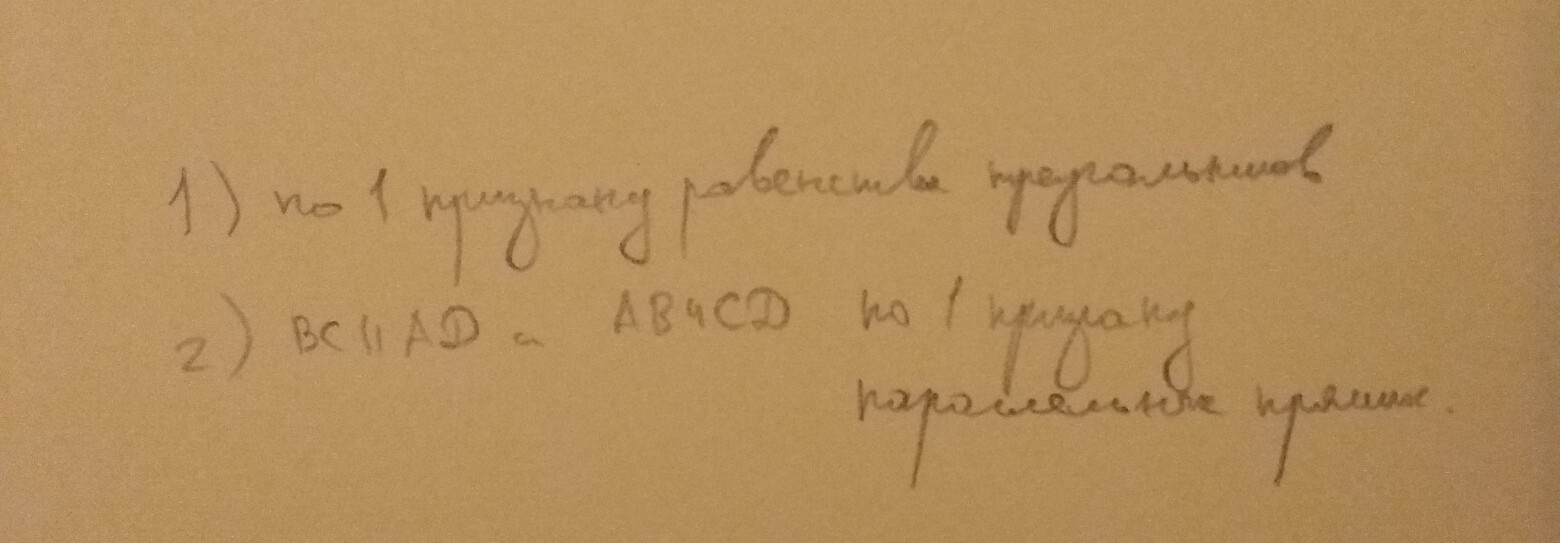 1) по 1 признаку равенства треугольников
2) BC || AD и AB || CD по 1 признаку
параллельных прямых.